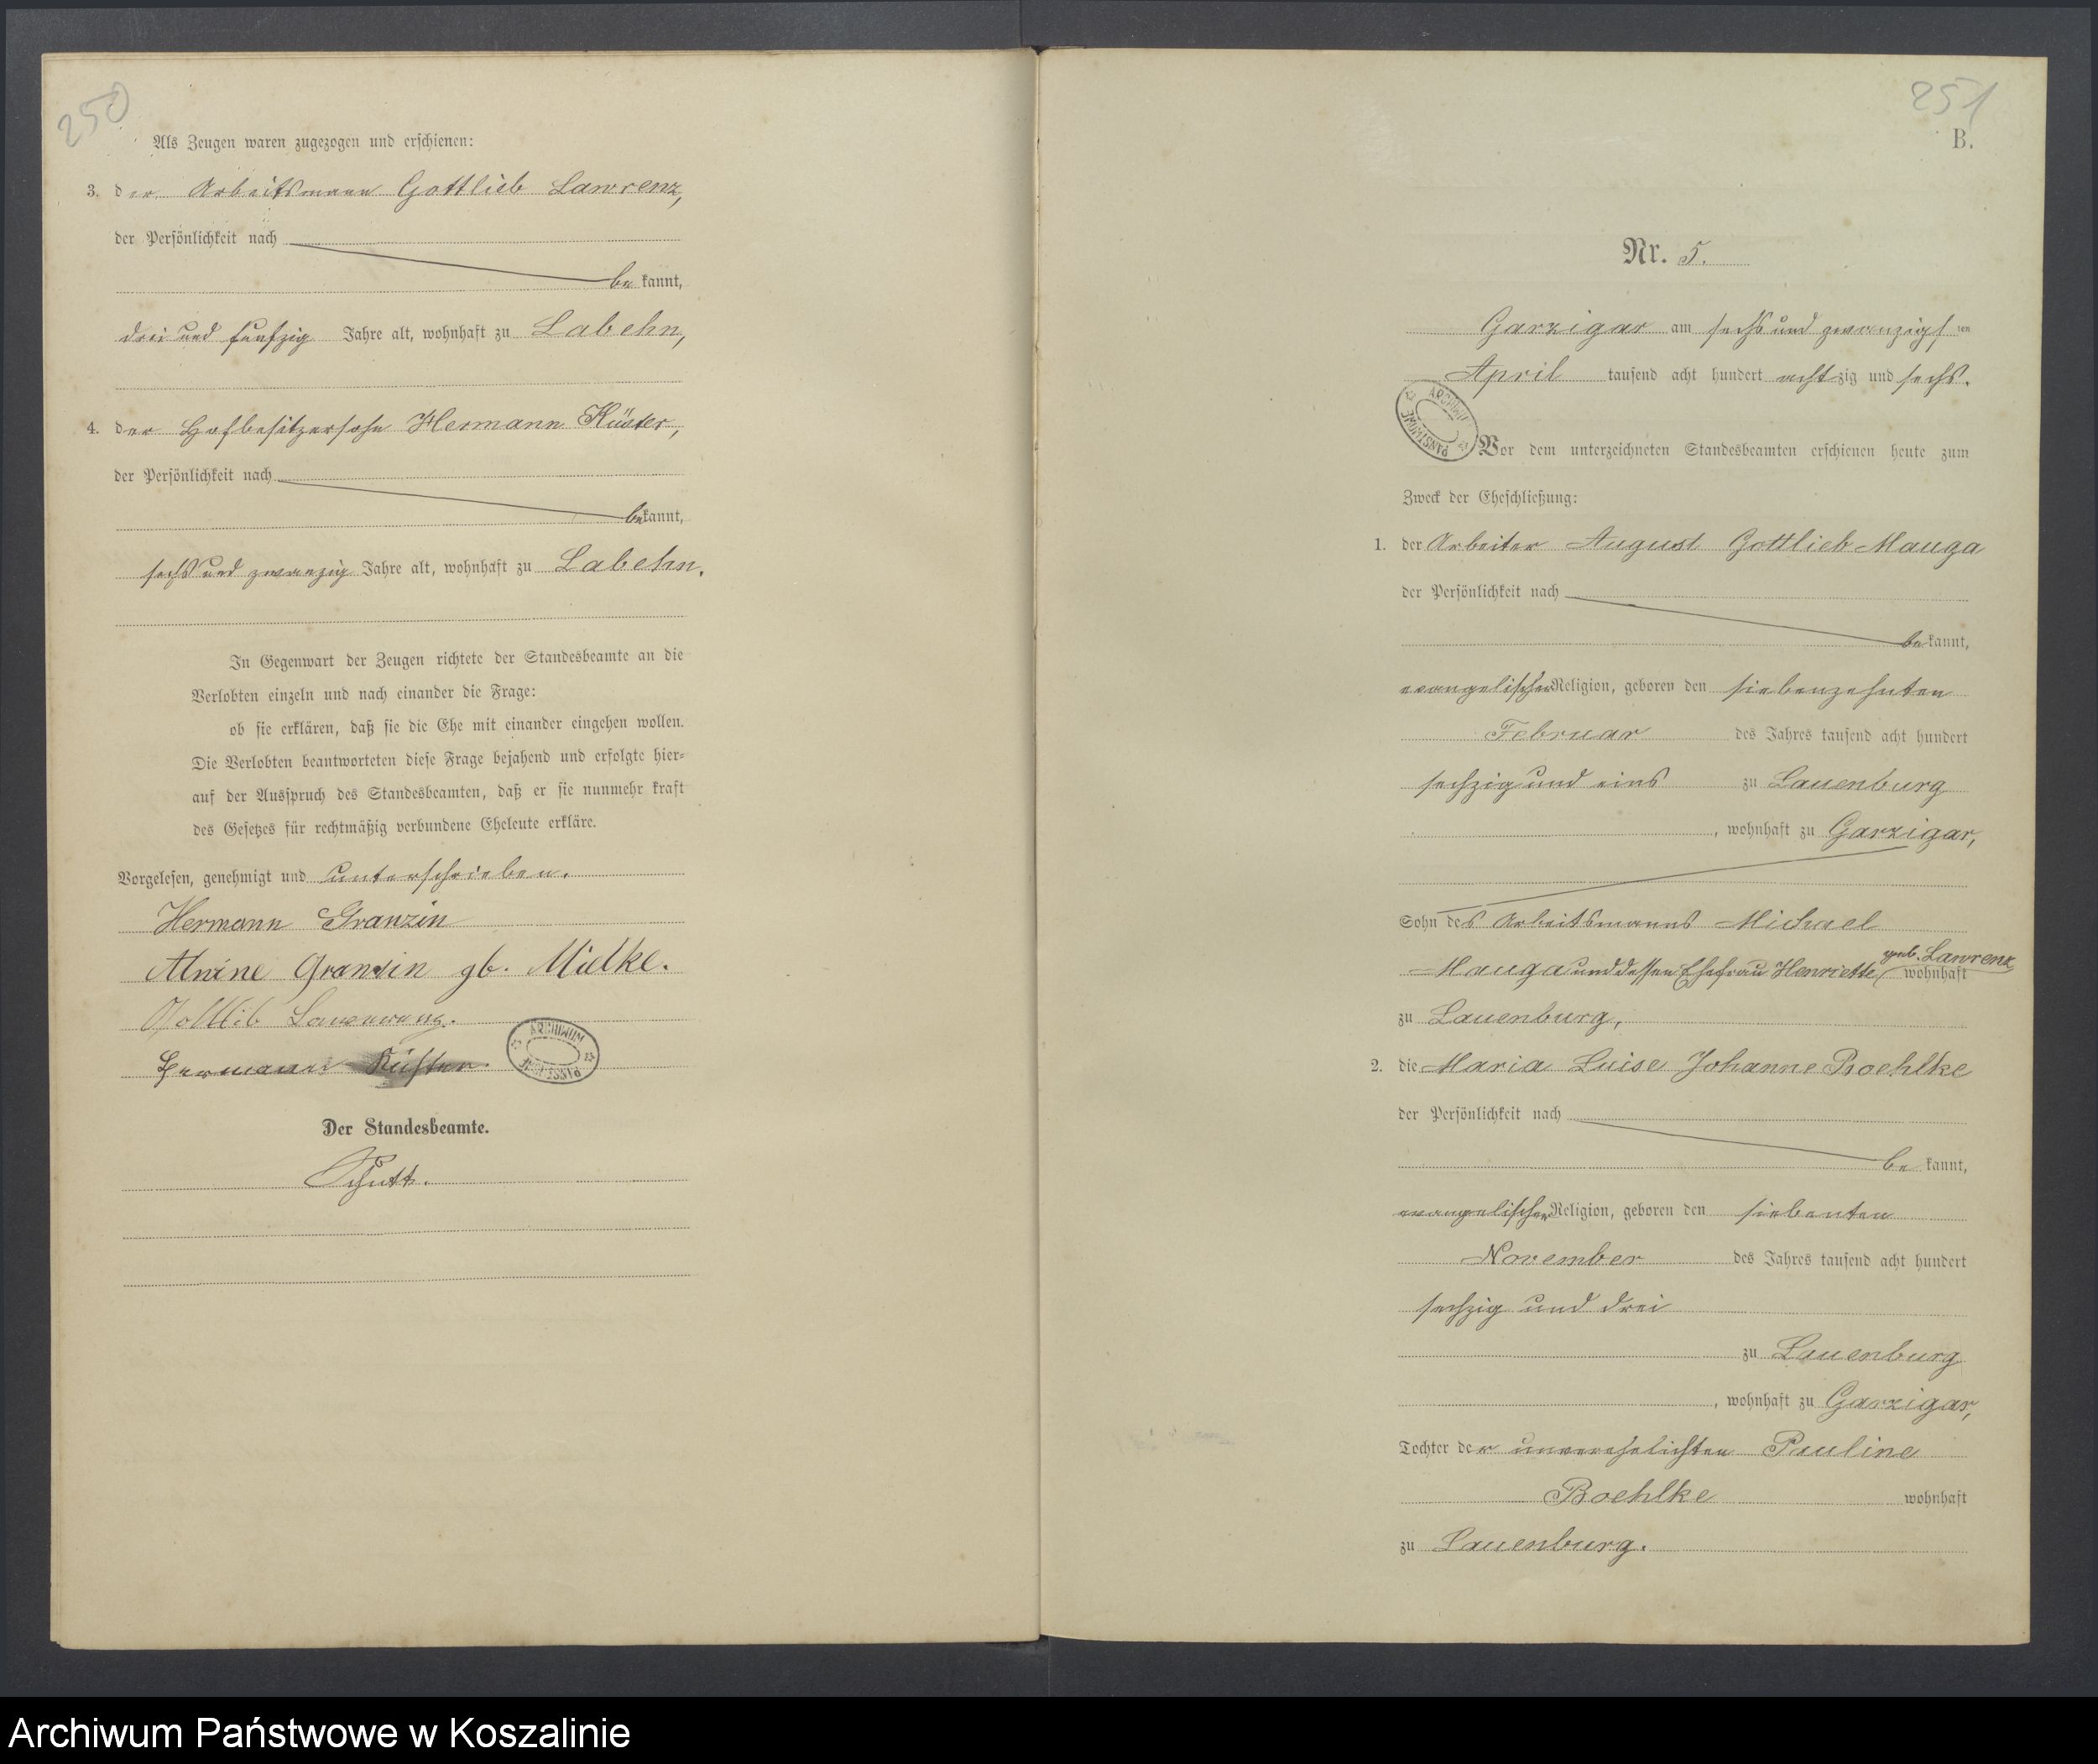 250
Als Zeugen waren zugezogen und erschienen:
3. der Arbeitsmann Gottlieb Lawrenz,
der Persönlichkeit nach
be kannt,
drei und fünfzig Jahre alt, wohnhaft zu Labehn,
4. der Hofbesitzersohn Hermann Küster,
der Persönlichkeit nach
bekannt,
sechs und zwanzig Jahre alt, wohnhaft zu Labehn.
In Gegenwart der Zeugen richtete der Standesbeamte an die
Verlobten einzeln und nach einander die Frage:
ob sie erklären, daß sie die Ehe mit einander eingehen wollen.
Die Verlobten beantworteten diese Frage bejahend und erfolgte hier-
auf der Ausspruch des Standesbeamten, daß er sie nunmehr kraft
des Gesetzes für rechtmäßig verbundene Eheleute erkläre.
Vorgelesen, genehmigt und unterschrieben.
Hermann Granzin
Alwine Granzin gb. Mielke.
Gottlib
Hermann Küster.
ARCHIWUM PAŃSTWOWE
Der Standesbeamte.
251
B.
Nr. 5.
Garzigar am sechs und zwanzigsten
April tausend acht hundert achtzig und sechs.
ARCHIWUM PAŃSTWOWE
Vor dem unterzeichneten Standesbeamten erschienen heute zum
Zweck der Eheschließung:
1. der Arbeiter August Gottlieb Mauga
der Persönlichkeit nach
be kannt,
evangelischer Religion, geboren den siebenzehnten
Februar des Jahres tausend acht hundert
sechzig und eins zu Lauenburg
, wohnhaft zu Garzigar,
Sohn des Arbeitsmanns Michael
Mauga und dessen Ehefrau Henriette geb. Lawrenz wohnhaft
zu Lauenburg,
2. die Maria Luise Johanne Boehlke
der Persönlichkeit nach
be kannt,
evangelischer Religion, geboren den siebenten
November des Jahres tausend acht hundert
sechzig und drei
zu Lauenburg
, wohnhaft zu Garzigar,
Tochter der unverehelichten Pauline
Boehlke wohnhaft
zu Lauenburg.
Archiwum Państwowe w Koszalinie